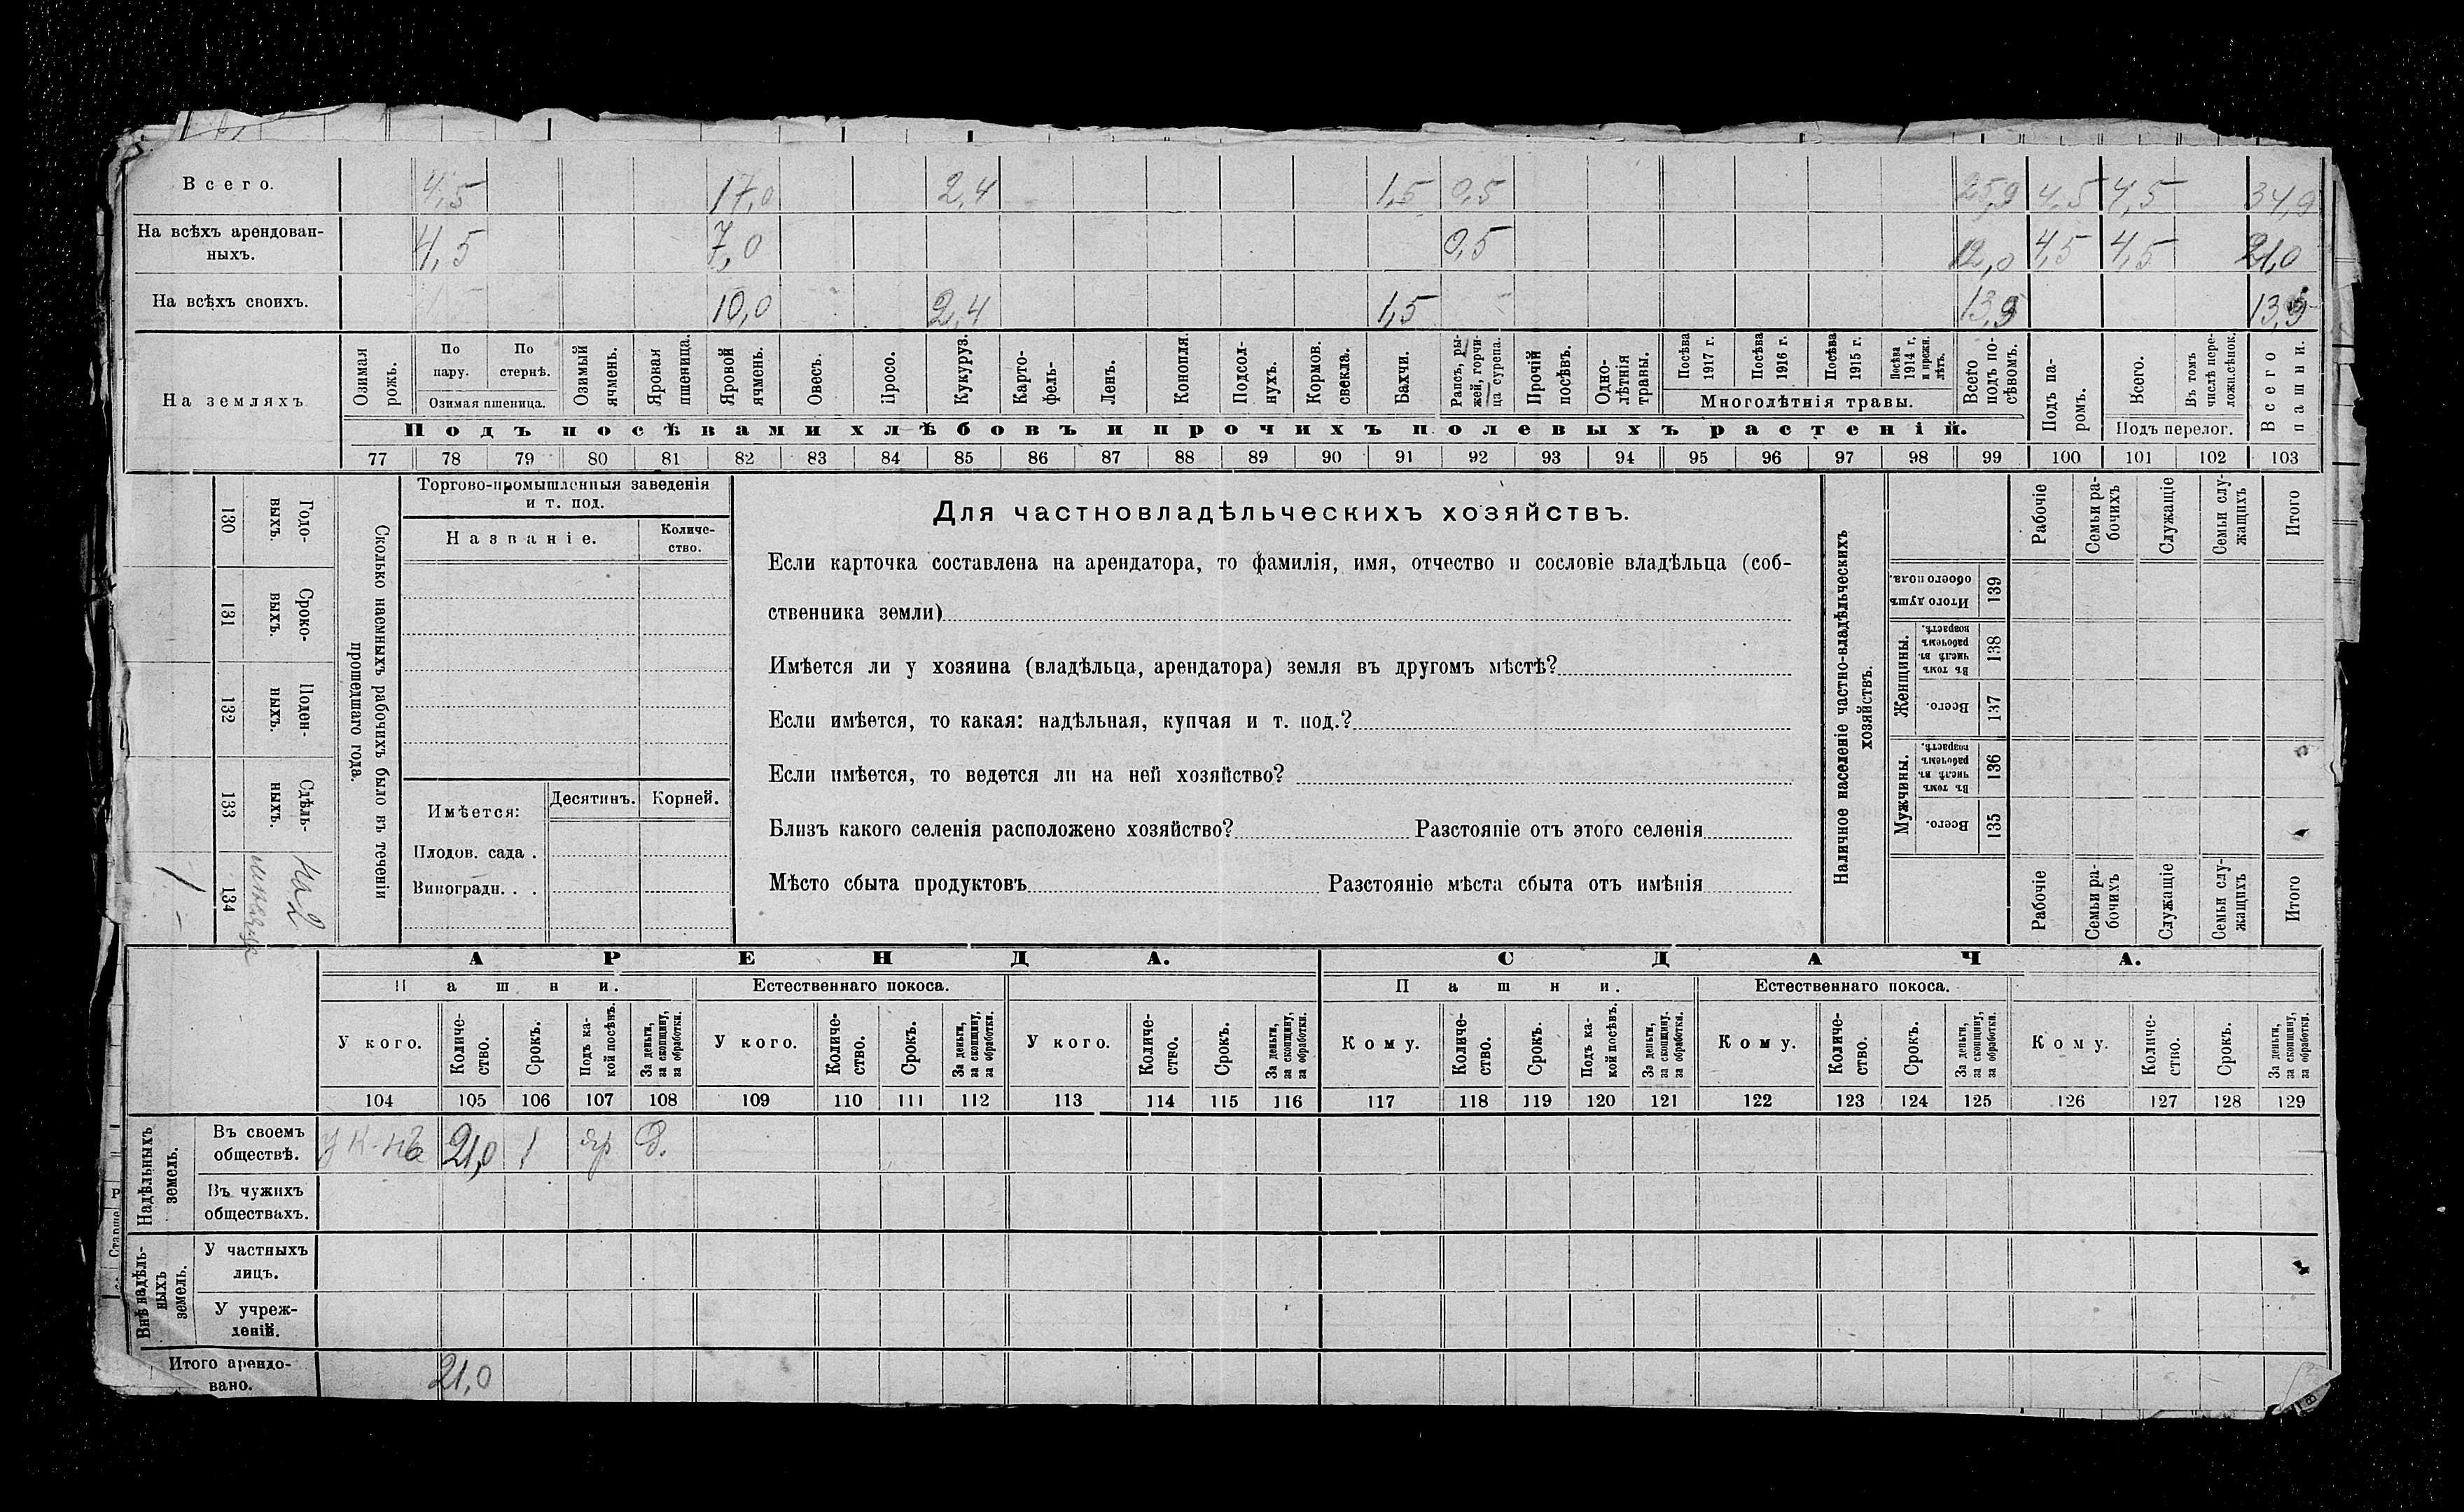 Всего. 4,5 17,0 2,4 1,5 0,5 25,9 4,5 4,5 34,9
На всѣхъ арендован-
ныхъ. 4,5 7,0 0,5 12,0 4,5 4,5 21,0
На всѣхъ своихъ. 10,0 2,4 1,5 13,9 13,9
На земляхъ
Озимая рожь.
По пару.
По стернѣ.
Озимая пшеница.
Озимый ячмень.
Яровая пшеница.
Яровой ячмень.
Овесъ.
Просо.
Кукуруз.
Карто-
фель-
Ленъ.
Конопля.
Подсол-
нухъ.
Кормов.
свекла.
Бахчи.
Рапсъ, ры-
жей, горчи-
ца сурепа.
Прочій
посѣвъ.
Одно-
лѣтнія
травы.
Посѣва
1917 г.
Посѣва
1916 г.
Посѣва
1915 г.
Посѣва
1914 г.
и прежн.
лѣтъ.
Многолѣтнія травы.
Всего
подъ по-
сѣвомъ.
Подъ па-
ромъ.
Всего.
Въ томъ
числѣ пере-
ложн.сѣнок.
Подъ перелог.
Всего
пашни.
Подъ посѣвами хлѣбовъ и прочихъ полевыхъ растеній.
77 78 79 80 81 82 83 84 85 86 87 88 89 90 91 92 93 94 95 96 97 98 99 100 101 102 103
Годо-
выхъ.
130
Сроко-
выхъ.
131
Поден-
ныхъ.
132
Сдѣль-
ныхъ.
133
134
Сколько наемныхъ рабочихъ было въ теченіи
прошедшаго года.
Торгово-промышленныя заведенія
и т. под.
Названіе.
Количе-
ство.
Имѣется:
Десятинъ. Корней.
Плодов. сада .
Виноградн. . .
Для частновладѣльческихъ хозяйствъ.
Если карточка составлена на арендатора, то фамилія, имя, отчество и сословіе владѣльца (соб-
ственника земли)
Имѣется ли у хозяина (владѣльца, арендатора) земля въ другомъ мѣстѣ?
Если имѣется, то какая: надѣльная, купчая и т. под.?
Если имѣется, то ведется ли на ней хозяйство?
Близъ какого селенія расположено хозяйство? Разстояніе отъ этого селенія
Мѣсто сбыта продуктовъ Разстояніе мѣста сбыта отъ имѣнія
Наличное населеніе частно-владѣльческихъ
хозяйствъ.
Рабочіе
Семьи ра-
бочихъ
Служащіе
Семьи слу-
жащихъ
Итого
Итого душъ
обоего пола.
139
Женщины.
Въ томъ
числѣ въ
рабочемъ
возрастѣ.
138
Всего.
137
Мужчины.
Въ томъ
числѣ въ
рабочемъ
возрастѣ.
136
Всего.
135
Рабочіе
Семьи ра-
бочихъ
Служащіе
Семьи слу-
жащихъ
Итого
АРЕНДА. СДАЧА.
Пашни. Естественнаго покоса. Пашни. Естественнаго покоса.
У кого.
Количе-
ство.
Срокъ.
Подъ ка-
кой посѣвъ.
За деньги,
за скопщину,
за обработки.
У кого.
Количе-
ство.
Срокъ.
За деньги,
за скопщину,
за обработки.
У кого.
Количе-
ство.
Срокъ.
За деньги,
за скопщину,
за обработки.
Кому.
Количе-
ство.
Срокъ.
Подъ ка-
кой посѣвъ.
За деньги,
за скопщину.
за обработки.
Кому.
Количе-
ство.
Срокъ.
За деньги,
за скопщину,
за обработки.
Кому.
Количе-
ство.
Срокъ.
За деньги,
за скопщину,
за обработки.
104 105 106 107 108 109 110 111 112 113 114 115 116 117 118 119 120 121 122 123 124 125 126 127 128 129
Надѣльныхъ
земель.
Въ своемъ
обществѣ. 21,0 1 яр д.
Въ чужихъ
обществахъ.
Внѣ надѣль-
ныхъ
земель.
У частныхъ
лицъ.
У учреж-
деній.
Итого арендо-
вано. 21,0